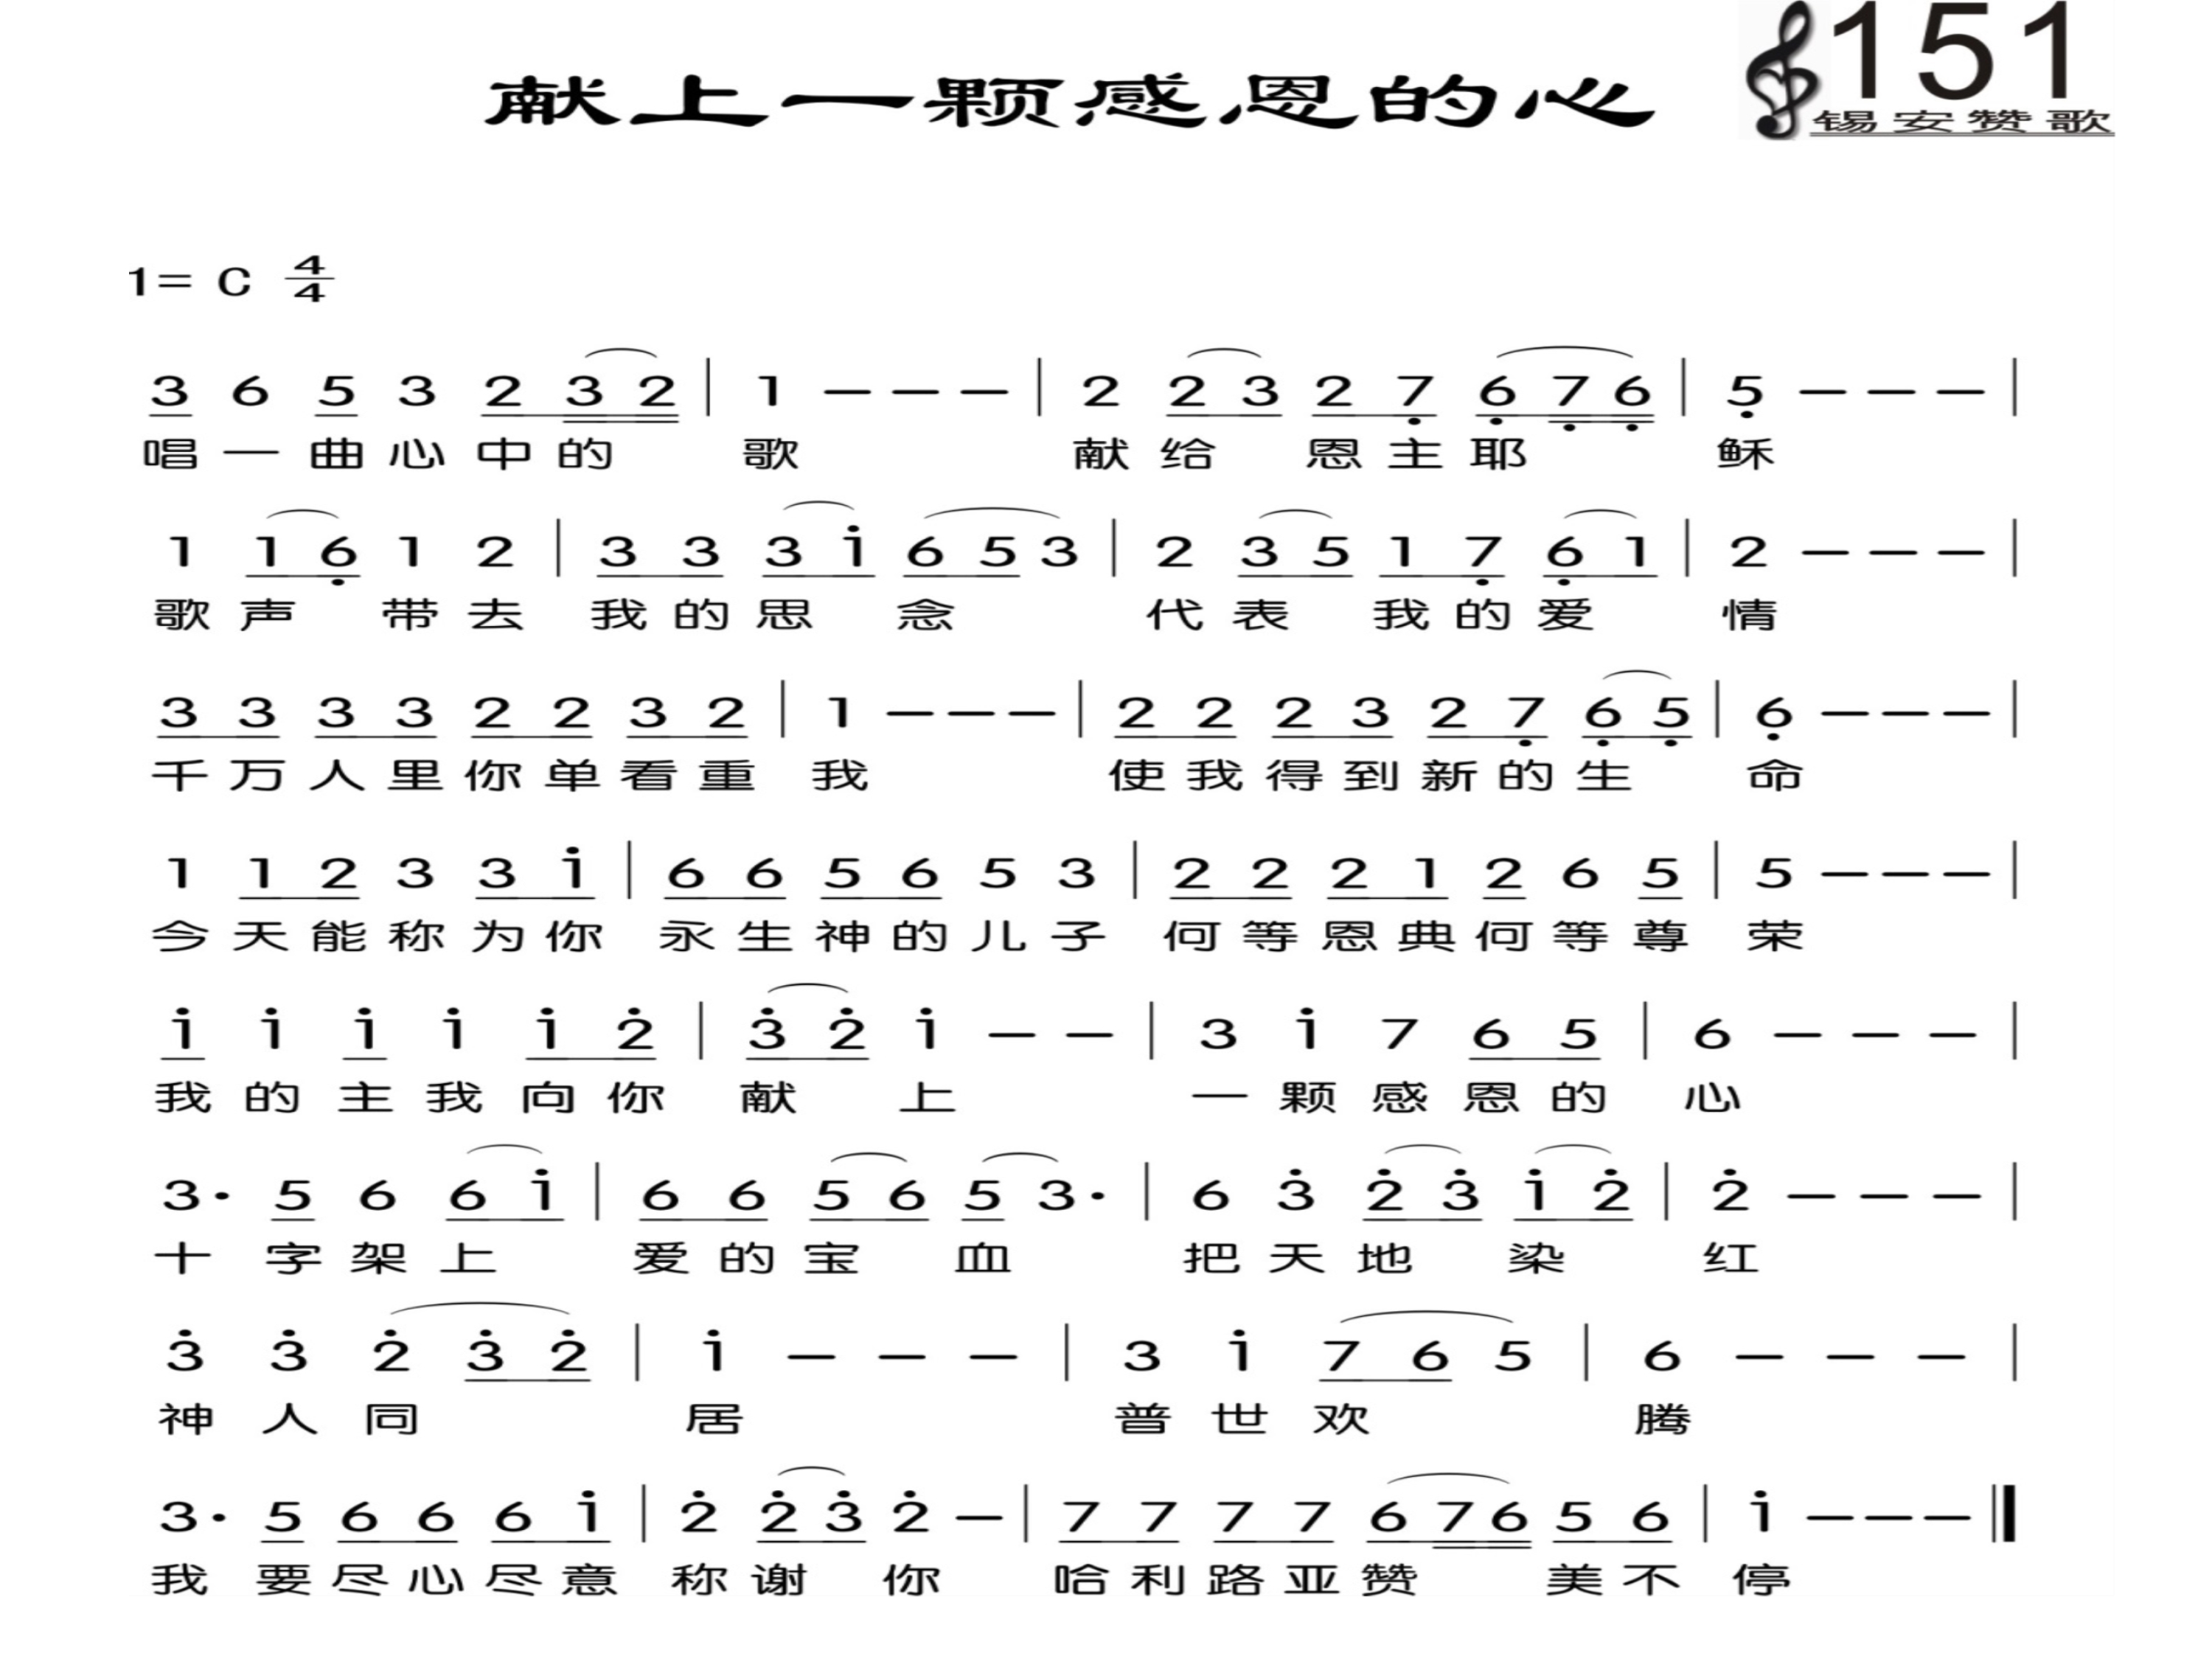 151
献上一颗感恩的心
锡安赞歌
1= C 4/4
3 6 5 3 2 3 2 | 1 — — — | 2 2 3 2 7̣ 6̣ 7̣ 6̣ | 5̣ — — — |
唱一曲心中的 歌 献给 恩主耶 稣
1 1 6̣ 1 2 | 3 3 3 i 6 5 3 | 2 3 5 1 7̣ 6̣ 1 | 2 — — — |
歌声 带去 我的思 念 代表 我的爱 情
3 3 3 3 2 2 3 2 | 1 — — — | 2 2 2 3 2 7̣ 6̣ 5̣ | 6̣ — — — |
千万人里你单看重 我 使我得到新的生 命
1 1 2 3 3 i | 6 6 5 6 5 3 | 2 2 2 1 2 6 5 | 5 — — — |
今天能称为你 永生神的儿子 何等恩典何等尊 荣
i i i i i 2̇ | 3̇ 2̇ i — — | 3 i 7 6 5 | 6 — — — |
我的主我向你 献 上 一颗感恩的 心
3· 5 6 6 i | 6 6 5 6 5 3· | 6 3̇ 2̇ 3̇ i 2̇ | 2̇ — — — |
十 字架上 爱的宝 血 把天地 染 红
3̇ 3̇ 2̇ 3̇ 2̇ | i — — — | 3 i 7 6 5 | 6 — — — |
神人同 居 普世欢 腾
3· 5 6 6 6 i | 2̇ 2̇ 3̇ 2̇ — | 7 7 7 7 6 7 6 5 6 | i — — — ‖
我 要尽心尽意 称谢 你 哈利路亚赞 美不 停